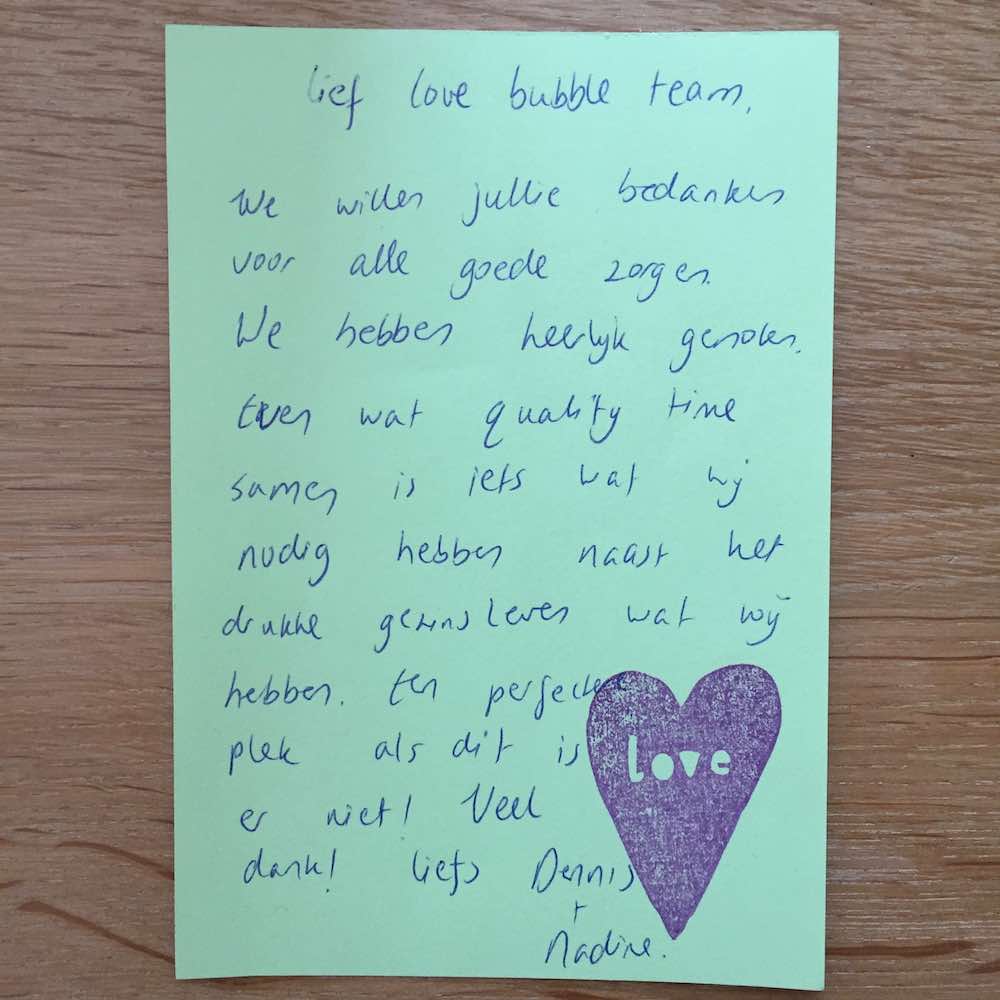 lief love bubble team,
We willen jullie bedanken
voor alle goede zorgen.
We hebben heerlijk genoten.
Even wat quality time
samen is iets wat wij
nodig hebben naast het
drukke gezinsleven wat wij
hebben. Een perfectere
plek als dit is
er niet! Veel
dank! liefs Dennis
+
Nadine.
love